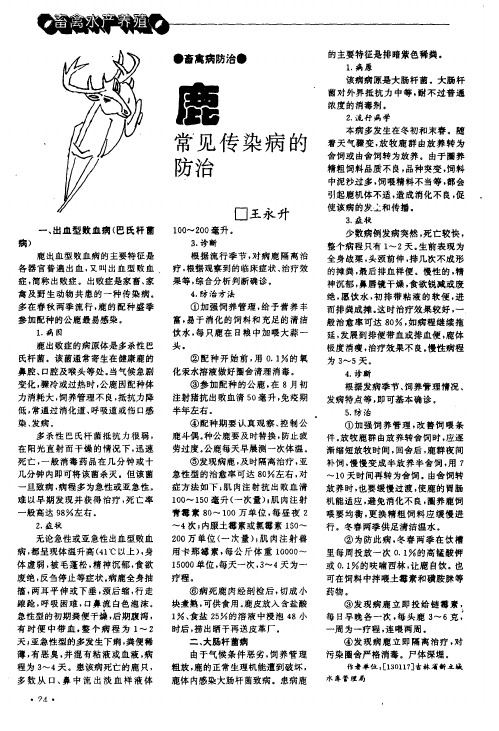 畜禽水产养殖
●畜禽病防治●
鹿
常见传染病的
防治
□王永升
一、出血型败血病(巴氏杆菌
病)
鹿出血型败血病的主要特征是
各器官普遍出血,又叫出血型败血
症,简称出败症。出败症是家畜、家
禽及野生动物共患的一种传染病。
多在春秋两季流行,鹿的配种盛季
参加配种的公鹿最易感染。
1.病因
鹿出败症的病原体是多杀性巴
氏杆菌。该菌通常寄生在健康鹿的
鼻腔、口腔及喉头等处。当气候急剧
变化,骤冷或过热时,公鹿因配种体
力消耗大,饲养管理不良,抵抗力降
低,常通过消化道、呼吸道或伤口感
染、发病。
多杀性巴氏杆菌抵抗力很弱,
在阳光直射而干燥的情况下,迅速
死亡,一般消毒药品在几分钟或十
几分钟内即可将该菌杀灭。但该菌
一旦致病,病程多为急性或亚急性。
难以早期发现并获得治疗,死亡率
一般高达98%左右。
2.症状
无论急性或亚急性出血型败血
病,都呈现体温升高(41℃以上),身
体虚弱,被毛蓬松,精神沉郁,食欲
废绝,反刍停止等症状,病鹿全身抽
搐,两耳平伸或下垂,颈后缩,行走
踉跄,呼吸困难,口鼻流白色泡沫。
急性型的初期粪便干燥,后期腹泻,
有时便中带血。整个病程为1~2
天;亚急性型的多发生下痢,粪便稀
薄,有恶臭,并混有粘液或血液,病
程为3~4天。患该病死亡的鹿只,
多数从口、鼻中流出淡血样液体
100~200毫升。
3.诊断
根据流行季节,对病鹿隔离治
疗,根据观察到的临床症状、治疗效
果等,综合分析判断确诊。
4.防治方法
①加强饲养管理,给于营养丰
富,易于消化的饲料和充足的清洁
饮水,每只鹿在日粮中加喂大蒜一
头。
②配种开始前,用0.1%的氧
化汞水溶液做好圈舍清理消毒。
③参加配种的公鹿,在8月初
注射猪抗出败血清50毫升,免疫期
半年左右。
④配种期要认真观察、控制公
鹿斗偶。种公鹿要及时替换,防止疲
劳过度。公鹿每天早晨测一次体温。
⑤发现病鹿,及时隔离治疗,亚
急性型的治愈率可达80%左右,对
症方法如下:肌肉注射抗出败血清
100~150毫升(一次量);肌肉注射
青霉素80~100万单位,每昼夜2
~4次;内服土霉素或氯霉素150~
200万单位(一次量);肌肉注射兽
用卡那霉素,每公斤体重10000~
15000单位,每天一次,3~4天为一
疗程。
⑥病死鹿肉经剖检后,切成小
块煮熟,可供食用。鹿皮放入含盐酸
1%、食盐25%的溶液中浸泡48小
时后,捞出晒干再送皮革厂。
二、大肠杆菌病
由于气候条件恶劣,饲养管理
粗放,鹿的正常生理机能遭到破坏,
鹿体内感染大肠杆菌致病。患病鹿
的主要特征是排暗紫色稀粪。
1.病原
该病病原是大肠杆菌。大肠杆
菌对外界抵抗力中等,耐不过普通
浓度的消毒剂。
2.流行病学
本病多发生在冬初和末春。随
着天气骤变,放牧鹿群由放养转为
舍饲或由舍饲转为放养。由于圈养
精粗饲料品质不良,品种突变,饲料
中泥沙过多,饲喂精料不当等,都会
引起鹿机体不适,造成消化不良,促
使该病的发生和传播。
3.症状
少数病例发病突然,死亡较快,
整个病程只有1~2天。生前表现为
全身战栗,头颈前伸,排几次不成形
的辣粪,最后排血样便。慢性的,精
神沉郁,鼻唇镜干燥,食欲锐减或废
绝,愿饮水,初排带粘液的软便,进
而排粪成摊。这时治疗效果较好,一
般治愈率可达80%,如病程继续拖
延,发展到排便带血或排血便,鹿体
极度消瘦,治疗效果不良。慢性病程
为3~5天。
4.诊断
根据发病季节、饲养管理情况、
发病特点等,即可基本确诊。
5.防治
①加强饲养管理,改善饲喂条
件。放牧鹿群由放养转舍饲时,应逐
渐缩短放牧时间,回舍后,鹿群夜间
补饲,慢慢变成半放养半舍饲,用7
~10天时间再转为舍饲。由舍饲转
放养时,也要缓慢过渡,使鹿的胃肠
机能适应,避免消化不良,圈养鹿饲
喂要均衡,更换精粗饲料应缓慢进
行。冬春两季供足清洁温水。
②为防此病,冬春两季在饮槽
里每周投放一次0.1%的高锰酸钾
或0.1%的呋喃西林,让鹿自饮。也
可在饲料中拌喂土霉素和磺胺脒等
药物。
③发现病鹿立即投给链霉素,
每日早晚各一次,每头鹿3~6克,
一周为一疗程,连喂两周。
④发现病鹿立即隔离治疗,对
污染圈舍严格消毒。尸体深埋。
作者单位:[130117]吉林省新立城
水库管理局
·24·